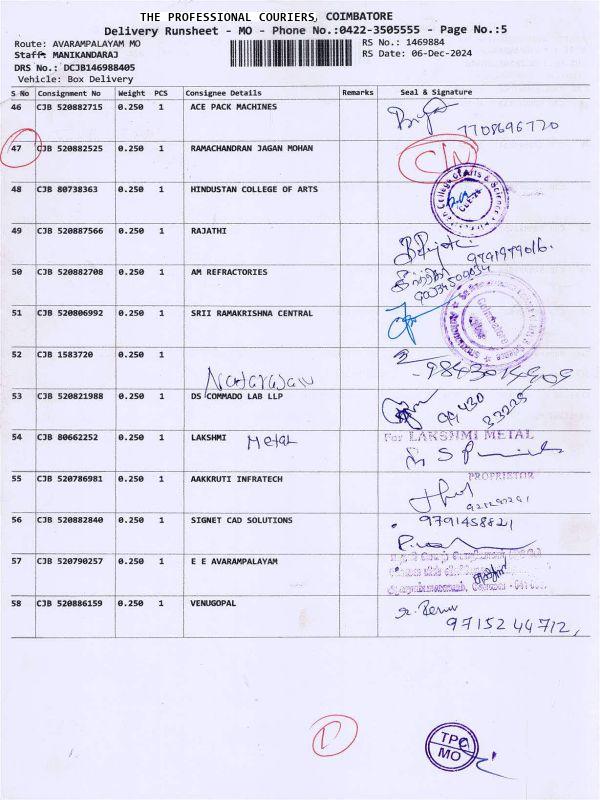 THE PROFESSIONAL COURIERS, COIMBATORE
Delivery Runsheet - MO - Phone No.:0422-3505555 - Page No.:5
Route: AVARAMPALAYAM MO RS No.: 1469884
Staff: MANIKANDARAJ RS Date: 06-Dec-2024
DRS No.: DCJB146988405
Vehicle: Box Delivery
S No Consignment No Weight PCS Consignee Details Remarks Seal & Signature
46 CJB 520882715 0.250 1 ACE PACK MACHINES
7708696770
47 CJB 520882525 0.250 1 RAMACHANDRAN JAGAN MOHAN
48 CJB 80738363 0.250 1 HINDUSTAN COLLEGE OF ARTS
49 CJB 520887566 0.250 1 RAJATHI
9791979016.
50 CJB 520882708 0.250 1 AM REFRACTORIES
51 CJB 520806992 0.250 1 SRII RAMAKRISHNA CENTRAL
52 CJB 1583720 0.250 1
Natarajan 9843014909
53 CJB 520821988 0.250 1 DS COMMADO LAB LLP
99430
33225
54 CJB 80662252 0.250 1 LAKSHMI Metal
For LAKSHMI METAL
PROPRIETOR
55 CJB 520786981 0.250 1 AAKKRUTI INFRATECH
56 CJB 520882840 0.250 1 SIGNET CAD SOLUTIONS
9791458821
57 CJB 520790257 0.250 1 E E AVARAMPALAYAM
58 CJB 520886159 0.250 1 VENUGOPAL
9715244712,
TPC
MO